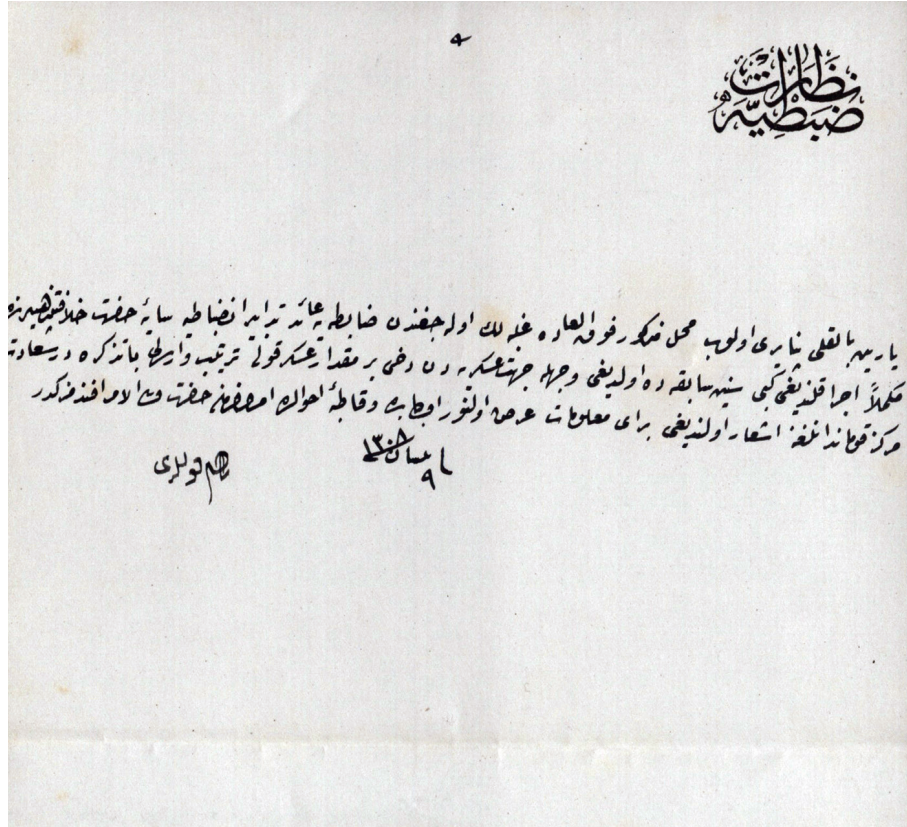 نظارت
ضبطيه
يارين بالقلى پنايرى اولوب محل مذكور فوق العاده غلبه لك اوله جغندن ضابطه يه عائد تدابير انضباطيه سايۀ حضرت خلافتپناهيده
مكملاً اجرا قلنديغى كبى سنين سابقه ده اولديغى وجهله جهت عسكريه دن دخى بر مقدار عسكر قولى ترتيب واركى باتذكره درسعادت
مركز قوماندانلغنه اشعار اولنديغى براى معلومات عرض اولنور اولبابده وقاطبۀ احوالده امر وفرمان حضرت من له الامر افندمزكدر
٩ نيسان ١٣٠٨
قوللرى